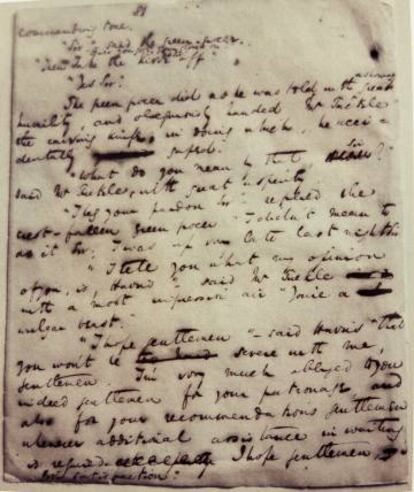 commanding tone.
"Sir" said the green-grocer.
"Then take the kiver off"
"Yes Sir"
The green grocer did as he was told with a show of great
humility, and obsequiously handed Mr Tuckle
the carving knife, in doing which, he acci-
dentally gaped.
"What do you mean by that, Sir?"
said Mr Tuckle, with great asperity.
"I beg your pardon Sir" replied the
crest-fallen green grocer "I didn't mean to
do it Sir; I was up very late last night Sir
"I tell you what my opinion
of you, is, Harris" said Mr Tuckle
with a most impressive air "You're a
wulgar beast."
"I hope gentlemen" – said Harris "that
you won't be severe with me,
gentlemen. I'm very much obliged to you
indeed gentlemen for your patronage, and
also for your recommendations gentlemen
whenever additional assistance in waiting
is required. I hope gentlemen, I
give satisfaction."